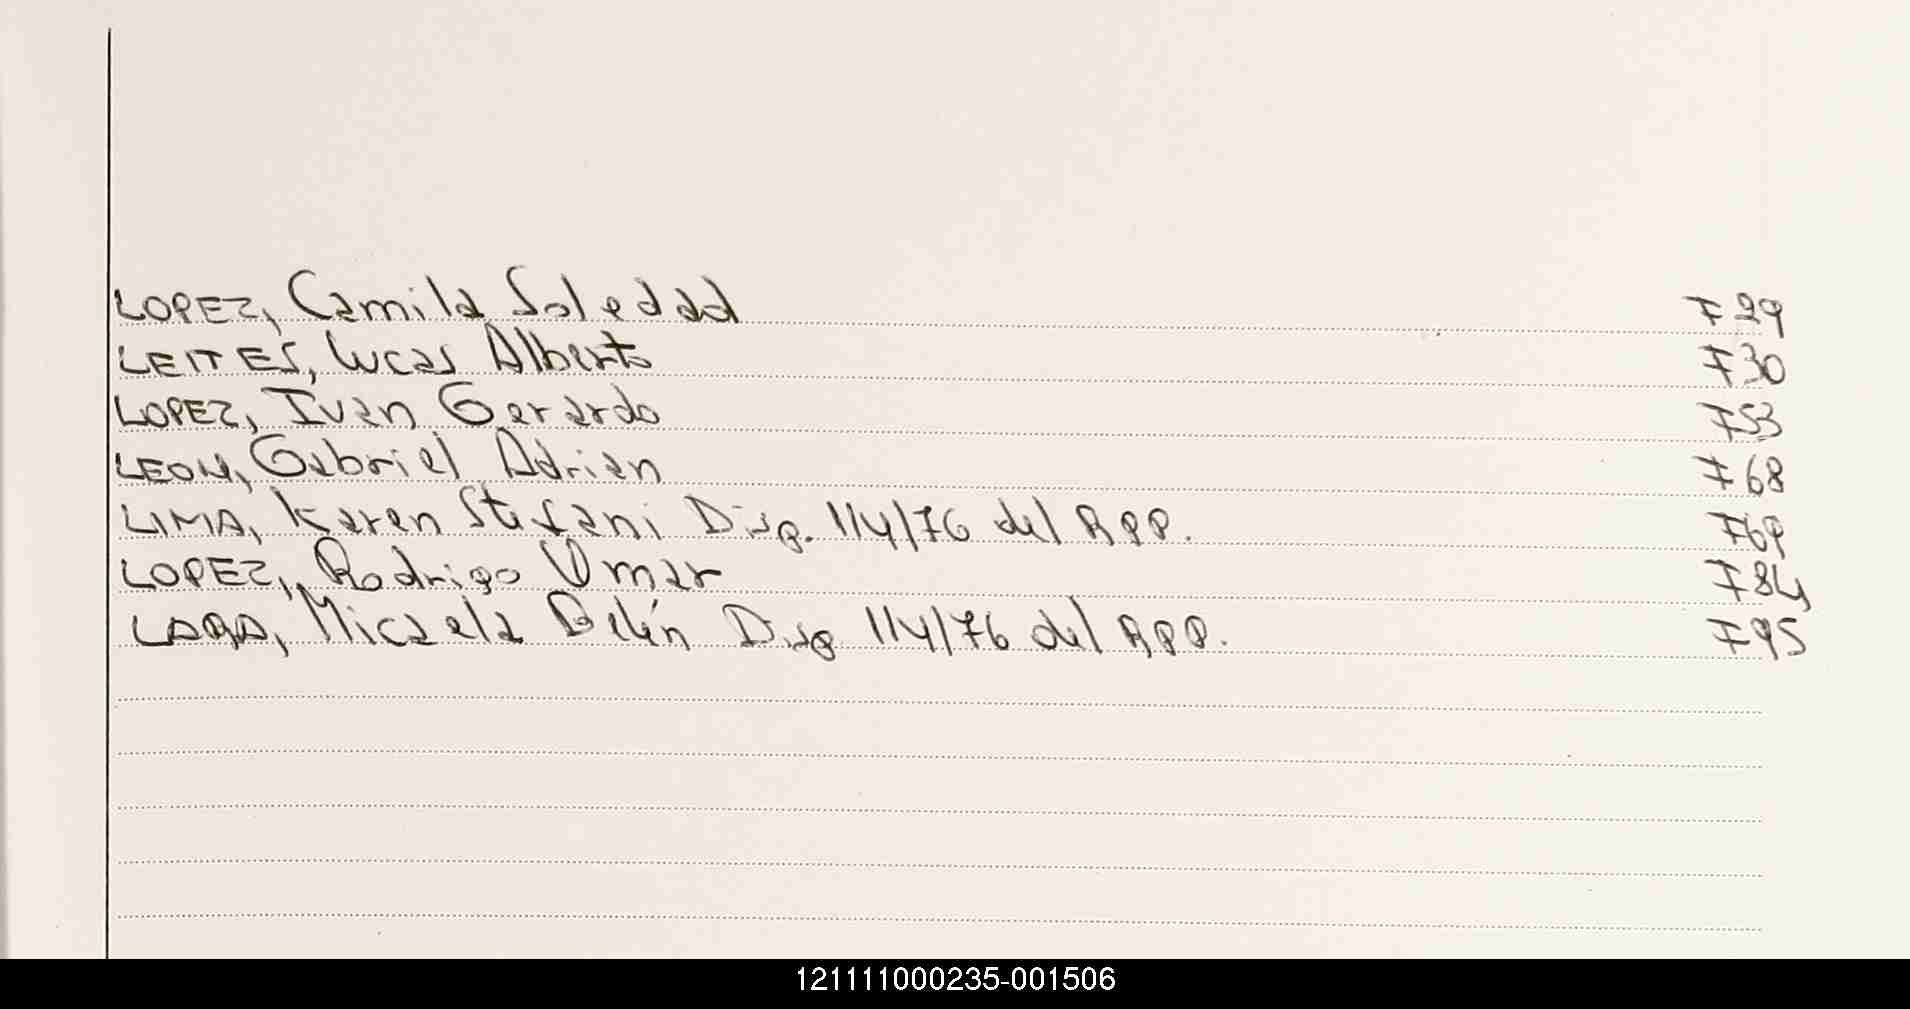 LOPEZ, Camila Soledad F 29
LEITES, Lucas Alberto F 30
LOPEZ, Ivan Gerardo F 53
LEON, Gabriel Adrian F 68
LIMA, Karen Stefani Disp. 114/76 del RPP. F 69
LOPEZ, Rodrigo Omar F 84
LARA, Micaela Belén Disp 114/76 del RPP. F 95
121111000235-001506